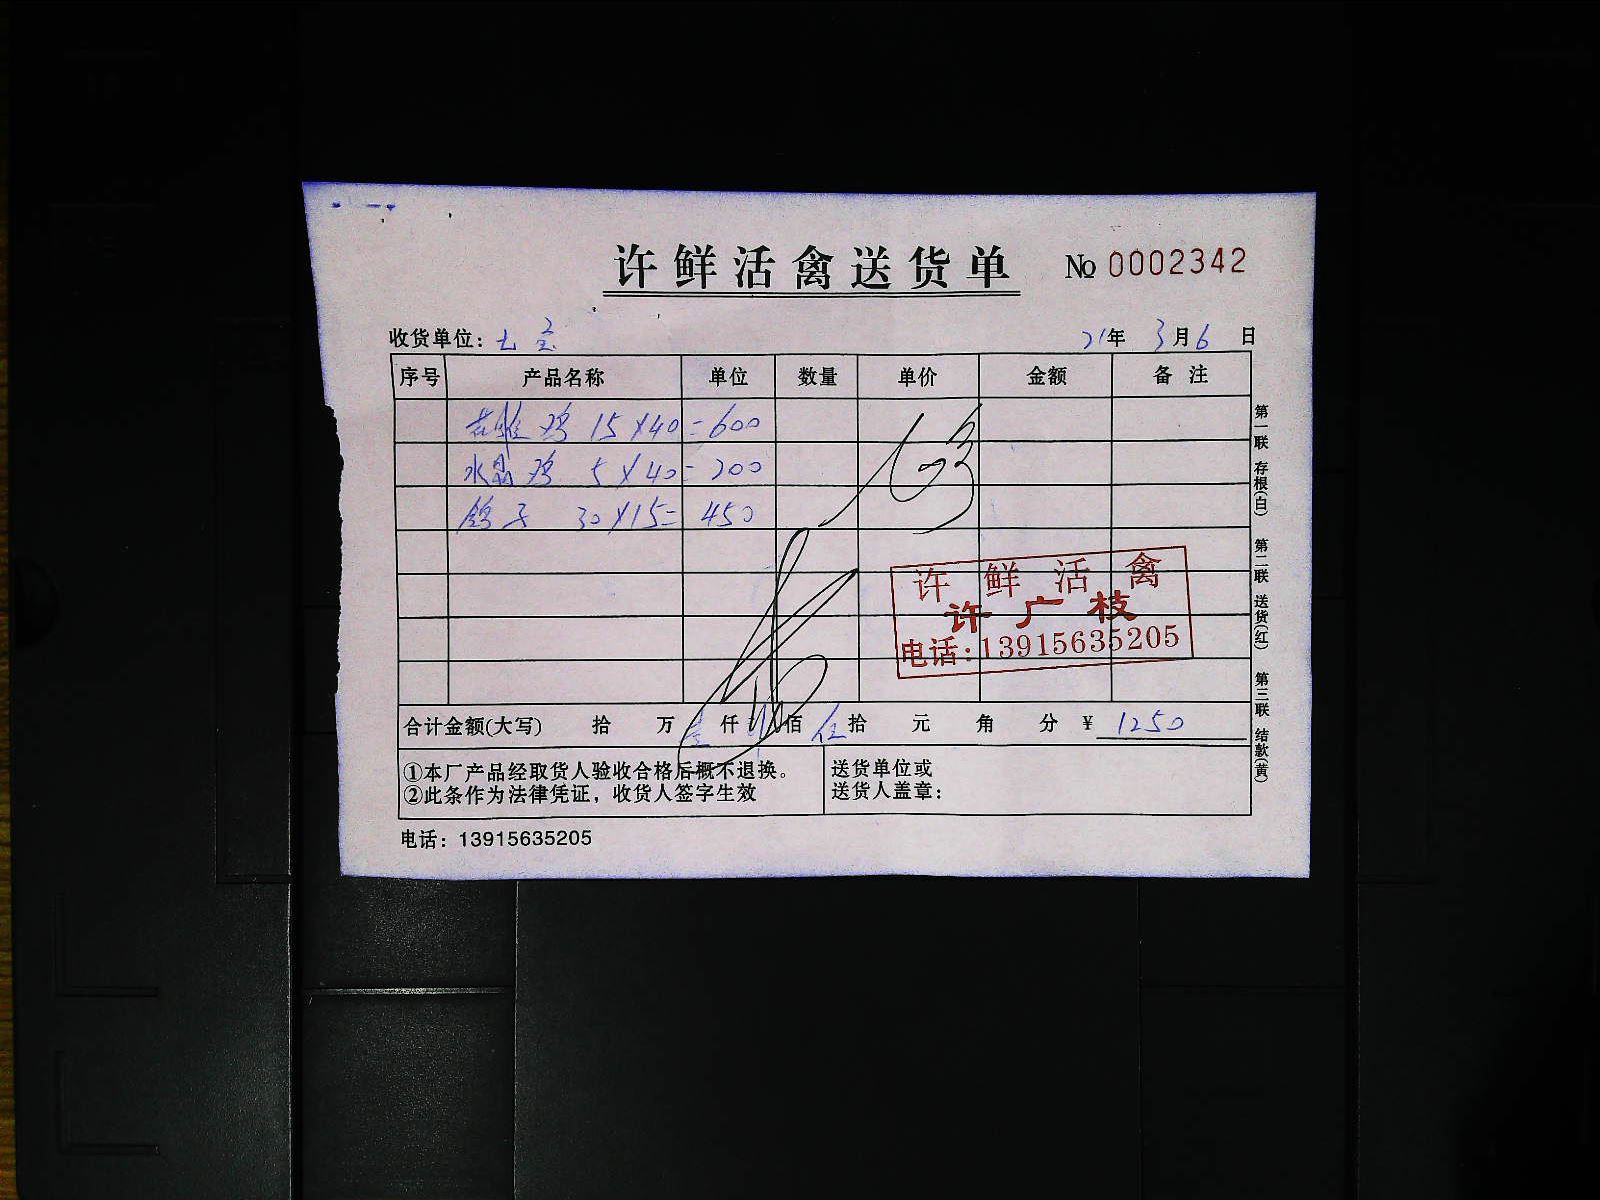 许鲜活禽送货单 No 0002342
收货单位：七宝 21年 3月6日
序号 产品名称 单位 数量 单价 金额 备注
鸡 15×40=600
水晶鸡 5×40=200
鸽子 30×15=450
许鲜活禽
许广枝
电话:13915635205
合计金额(大写) 拾 万 壹仟 佰 伍拾 元 角 分 ¥ 1250
①本厂产品经取货人验收合格后概不退换。
②此条作为法律凭证，收货人签字生效
送货单位或
送货人盖章：
电话：13915635205
第一联 存根(白) 第二联 送货(红) 第三联 结款(黄)